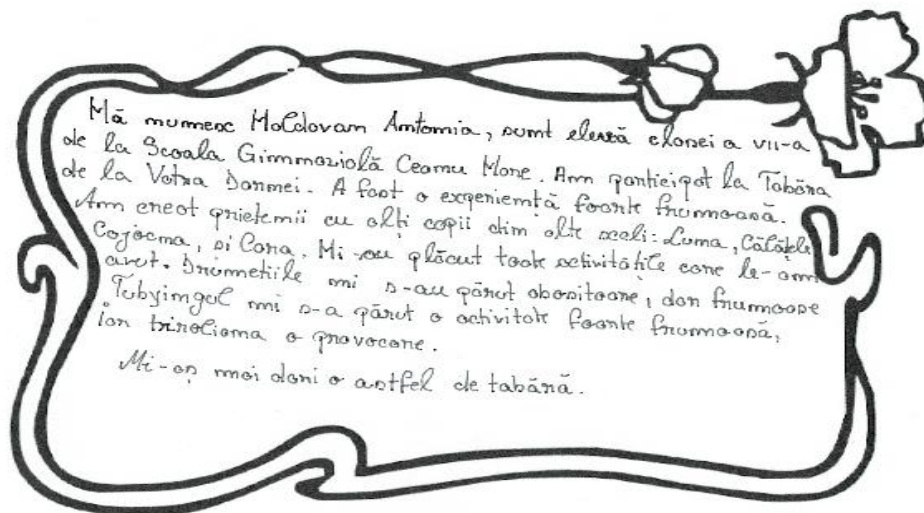 Mă numesc Moldovan Antonia, sunt elevă clasei a VII-a
de la Scoala Gimnazială Ceanu Mare. Am participat la Tabăra
de la Vatra Dornei. A fost o experiență foarte frumoasă.
Am creat prietenii cu alți copii din alte scoli: Luna, Călățele
Cojocna, si Cara. Mi-au plăcut toate activitățile care le-am
avut. Drumețiile mi s-au părut obositoare, dar frumoase
Tubyingul mi s-a părut o activitate foarte frumoasă,
iar tiroliana o provocare.
Mi-aș mai dori o astfel de tabără.